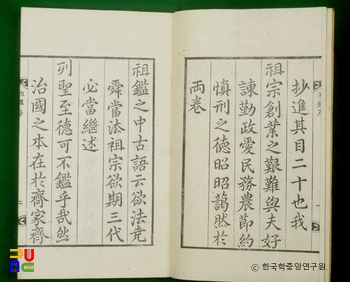 抄進其目二十也我
祖宗創業之艱難與夫好
諫勤政愛民務農節約
慎刑之德昭昭藹然於
兩卷
祖鑑之中古語云欲法堯
舜當法祖宗欲期三代
必當繼述
列聖至德可不鑑乎哉然
治國之本在於齊家齊
© 한국학중앙연구원